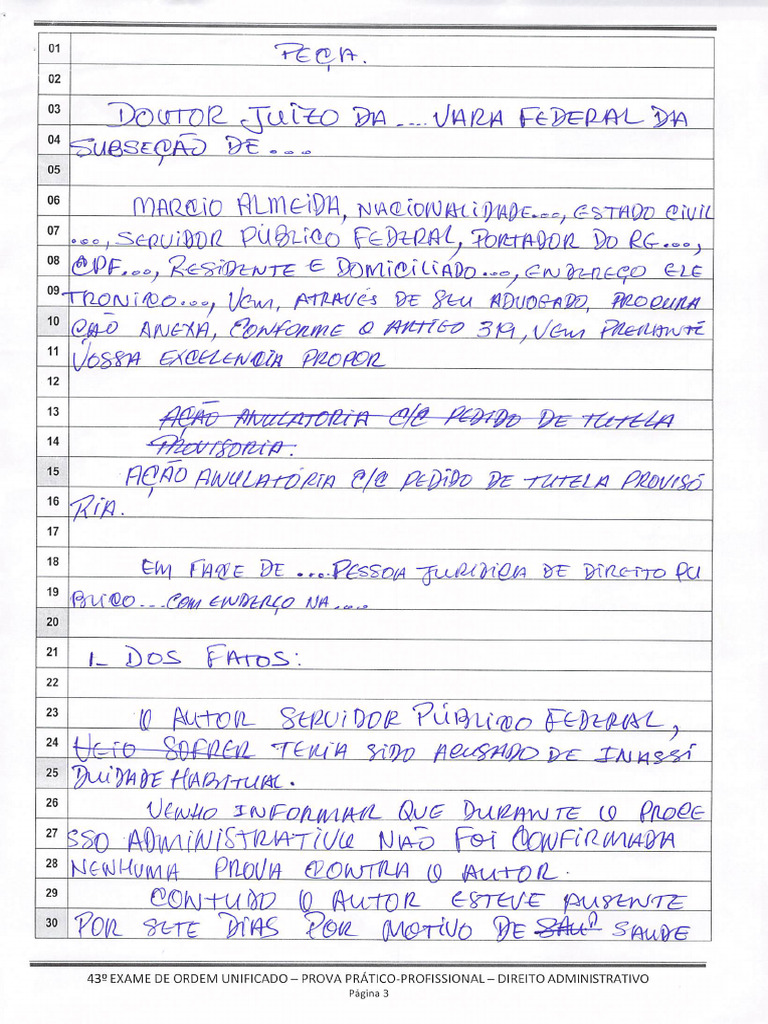 01 PEÇA.
02
03 DOUTOR JUÍZO DA .... VARA FEDERAL DA
04 SUBSEÇÃO DE ...
05
06 MARCIO ALMEIDA, NACIONALIDADE..., ESTADO CIVIL
07 ..., SERVIDOR PÚBLICO FEDERAL, PORTADOR DO RG...,
08 CPF..., RESIDENTE E DOMICILIADO..., ENDEREÇO ELE
09 TRONICO..., VEM, ATRAVÉS DE SEU ADVOGADO, PROCURA
10 ÇÃO ANEXA, CONFORME O ARTIGO 319, VEM PRERANTE
11 VOSSA EXCELENCIA PROPOR
12
13 AÇÃO ANULATORIA C/C PEDIDO DE TUTELA
14 PROVISORIA.
15 AÇÃO ANULATÓRIA C/C PEDIDO DE TUTELA PROVISÓ
16 RIA.
17
18 EM FACE DE ... PESSOA JURIDICA DE DIREITO PU
19 BLICO... COM ENDERÇO NA....
20
21 1_ DOS FATOS:
22
23 O AUTOR SERVIDOR PÚBLICO FEDERAL,
24 VEIO SOFRER TERIA SIDO ACUSADO DE INASSI
25 DUIDADE HABITUAL.
26 VENHO INFORMAR QUE DURANTE O PROCE
27 SSO ADMINISTRATIVO NÃO FOI CONFIRMADA
28 NENHUMA PROVA CONTRA O AUTOR.
29 CONTUDO O AUTOR ESTEVE AUSENTE
30 POR SETE DIAS POR MOTIVO DE SAUD SAUDE
43º EXAME DE ORDEM UNIFICADO – PROVA PRÁTICO-PROFISSIONAL – DIREITO ADMINISTRATIVO
Página 3